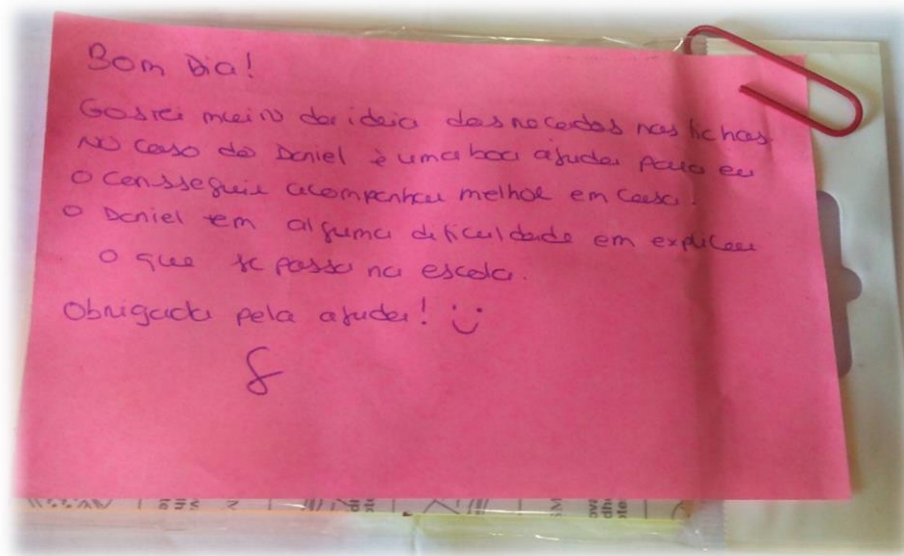 Bom Dia!
Gostei muito da ideia dos recados nas fichas.
No caso do Daniel é uma boa ajuda para eu
o consseguir acompanhar melhor em casa.
O Daniel tem alguma dificuldade em explicar
o que se passa na escola.
Obrigada pela ajuda! :)